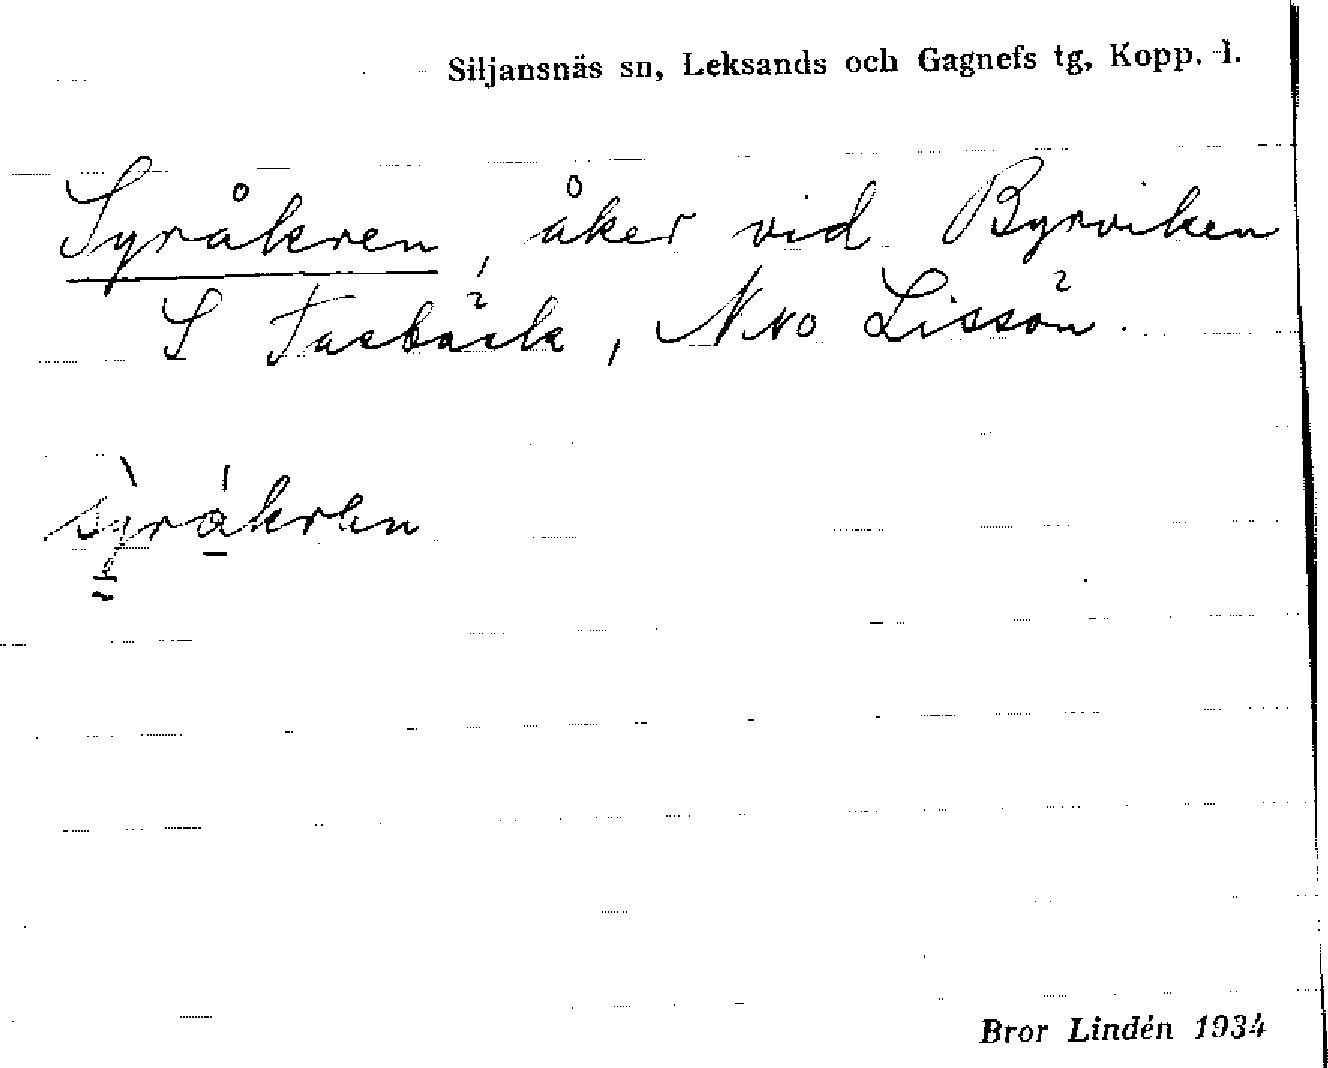 Siljansnäs sn, Leksands och Gagnefs tg, Kopp. l.
Syråkren, åker vid Byrviken
S Fasbäck, NNO Lissön.
sỳ̱rá̱kren
Bror Lindén 1934